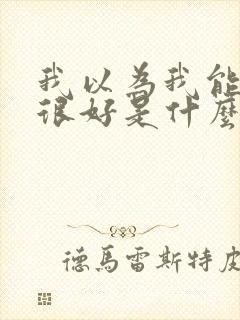 我以為我能
很好是什麼
德馬雷斯特皮